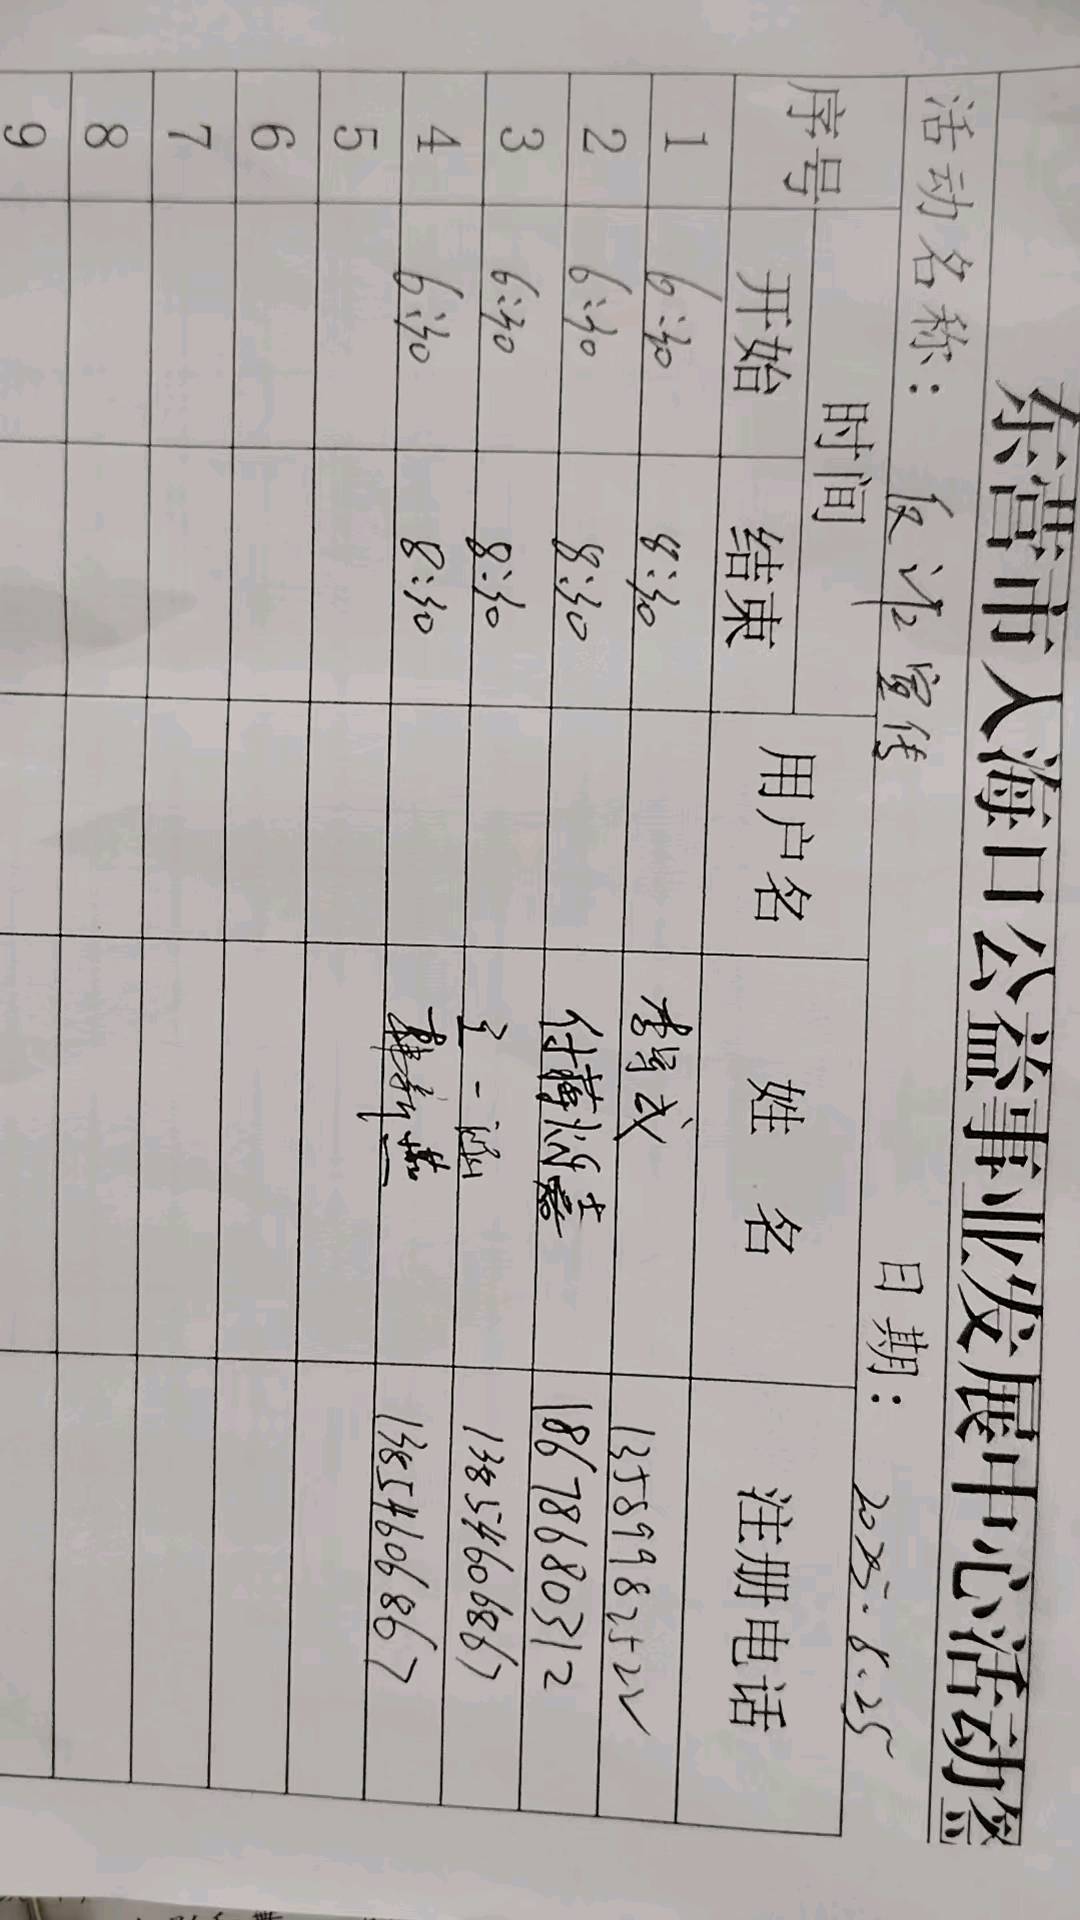 东营市人海口公益事业发展中心活动签
活动名称：反诈宣传 日期：2025.6.25
序号 时间 用户名 姓名 注册电话
开始 结束
1 6:30 8:30 13589982522
2 6:30 8:30 18678680312
3 6:30 8:30 王一涵 13854606867
4 6:30 8:30 13854606867
5
6
7
8
9